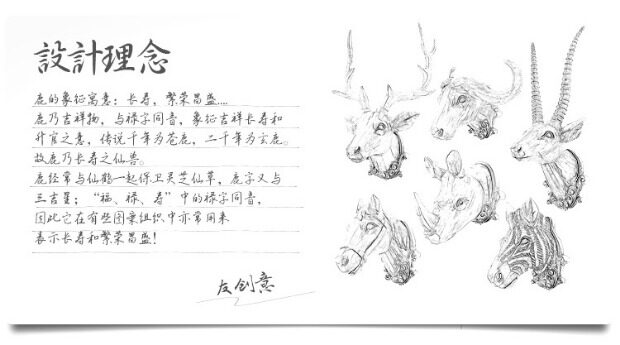 設計理念
鹿的象征寓意：长寿，繁荣昌盛....
鹿乃吉祥物，与禄字同音，象征吉祥长寿和
升官之意，传说千年为苍鹿，二千年为玄鹿。
故鹿乃长寿之仙兽。
鹿经常与仙鹤一起保卫灵芝仙草，鹿字又与
三吉星；“福、禄、寿”中的禄字同音，
因此它在有些图案组织中亦常用来
表示长寿和繁荣昌盛！
友创意